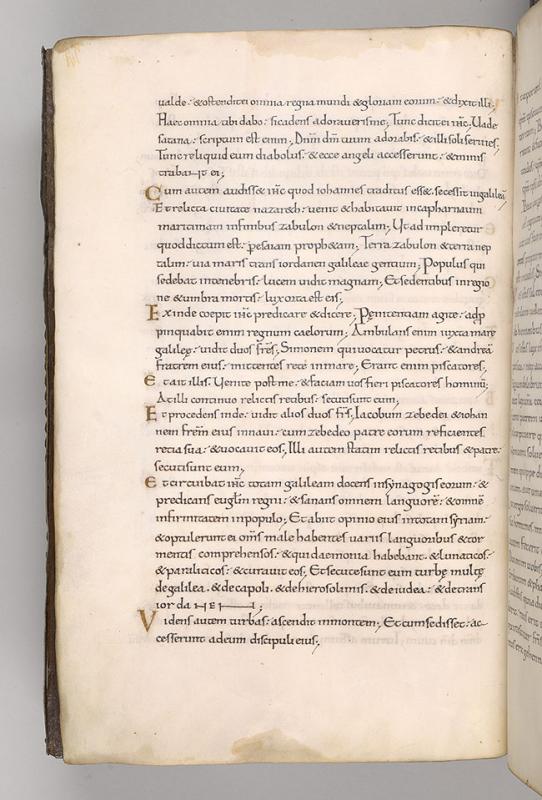 ualde · & ostendit ei omnia regna mundi & gloriam eorum · & dixit illi ·
Haec omnia tibi dabo · si cadens adoraueris me ; Tunc dicit ei ihc̄ · Uade
satana · scriptum est enim ; Dnm̄ dm̄ tuum adorabis · & illi soli seruies ;
Tunc reliquid eum diabolus · & ecce angeli accesserunt · & minis
trabant ei ;
Cum autem audiss& ihc̄ quod iohannes traditus ess& · secessit ingalileā
Et relicta ciuitate nazareth · uenit & habitauit in capharnaum
maritimam in finibus zabulon & neptalim ; Ut adimpleretur
quod dictum est · p̱ esaiam proph&am ; Terra zabulon & terra nep
talim · uia maris trans iordanen galileae gentium ; Populus qui
sedebat in tenebris · lucem uidit magnam ; Et sedentibus in regio
ne & umbra mortis · lux orta est eis ;
Exinde coepit ihc̄ predicare & dicere ; Penitentiam agite · adp̱
pinquabit enim regnum caelorum ; Ambulans enim iuxta mare
galileę · uidit duos fr̄es ; Simonem qui uocatur petrus · & andreā
fratrem eius · mittentes rete in mare ; Erant enim piscatores ;
Et ait illis · Uenite post me · & faciam uos fieri piscatores hominū ;
At illi continuo relictis retibus · secuti sunt eum ;
Et procedens inde · uidit alios duos fr̄s ; Iacobum zebedei & iohan
nem frēm eius in naui · cum zebedeo patre eorum reficientes
retia sua · & uocauit eos ; Illi autem statim relictis retibus & patre ·
secuti sunt eum ;
Et circuibat ihc̄ totam galileam docens in synagogis eorum · &
predicans eugl̄m regni · & sanans omnem languorē · & omnē
infirmitatem in populo ; Et abiit opinio eius in totam syriam ·
& optulerunt ei om̄s male habentes uariis languoribus & tor
mentis comprehensos · & qui daemonia habebant · & lunaticos ·
& paraliticos · & curauit eos ; Et secutę sunt eum turbę multę
de galilea · & decapoli · & de hierosolimis · & de iudea · & de trans
iordanen ;
Videns autem turbas · ascendit in montem ; Et cum sediss& · ac
cesserunt ad eum discipuli eius ;